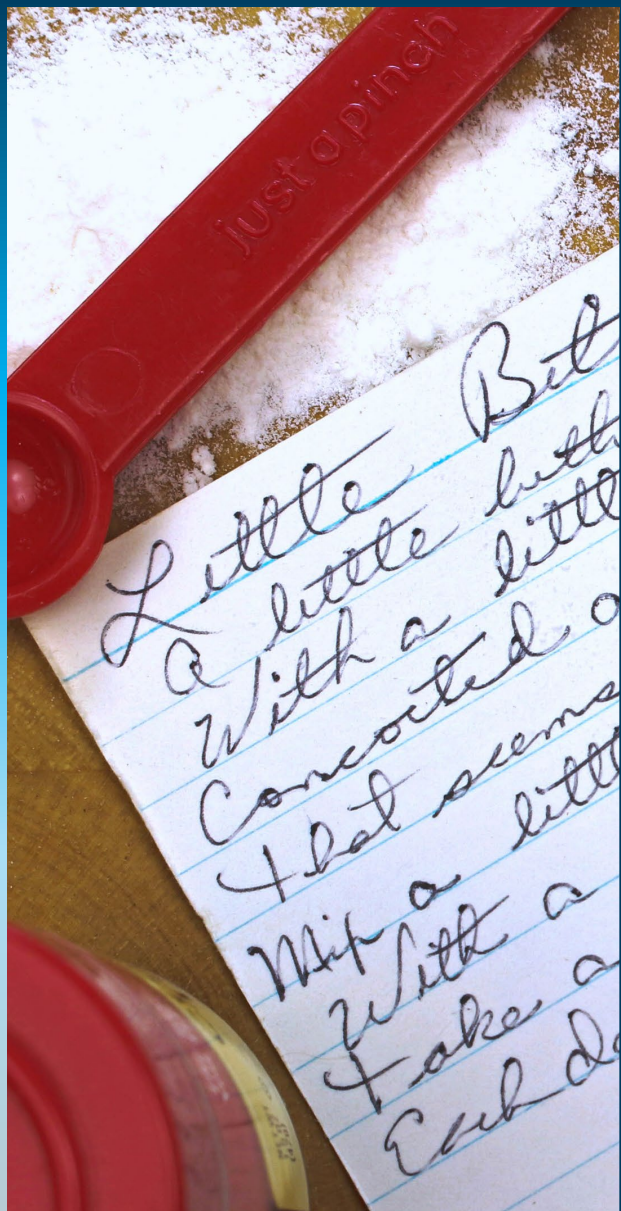 just a pinch
Little Bit
a little
With a little
Concocted
that seems
Mix a little
With a
take a
Each